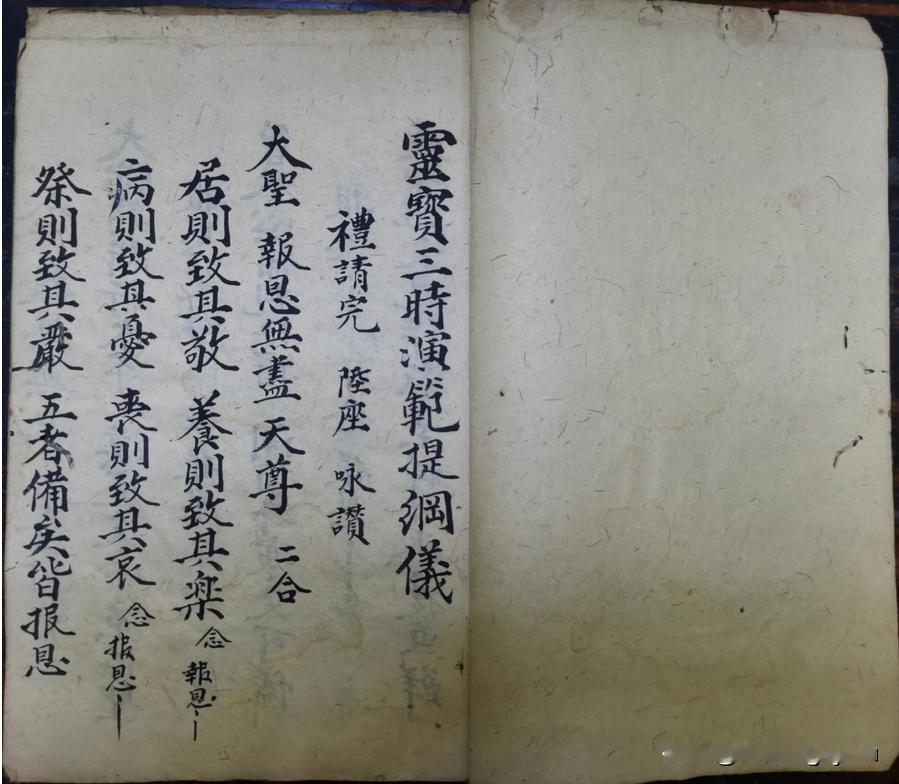 靈寶三時演範提綱儀
禮請完 陞座 咏讚
大聖 報恩無盡 天尊 二合
居則致其敬 養則致其楽 念 報恩
病則致其憂 喪則致其哀 念 报恩
祭則致其嚴 五者備矣皆报恩